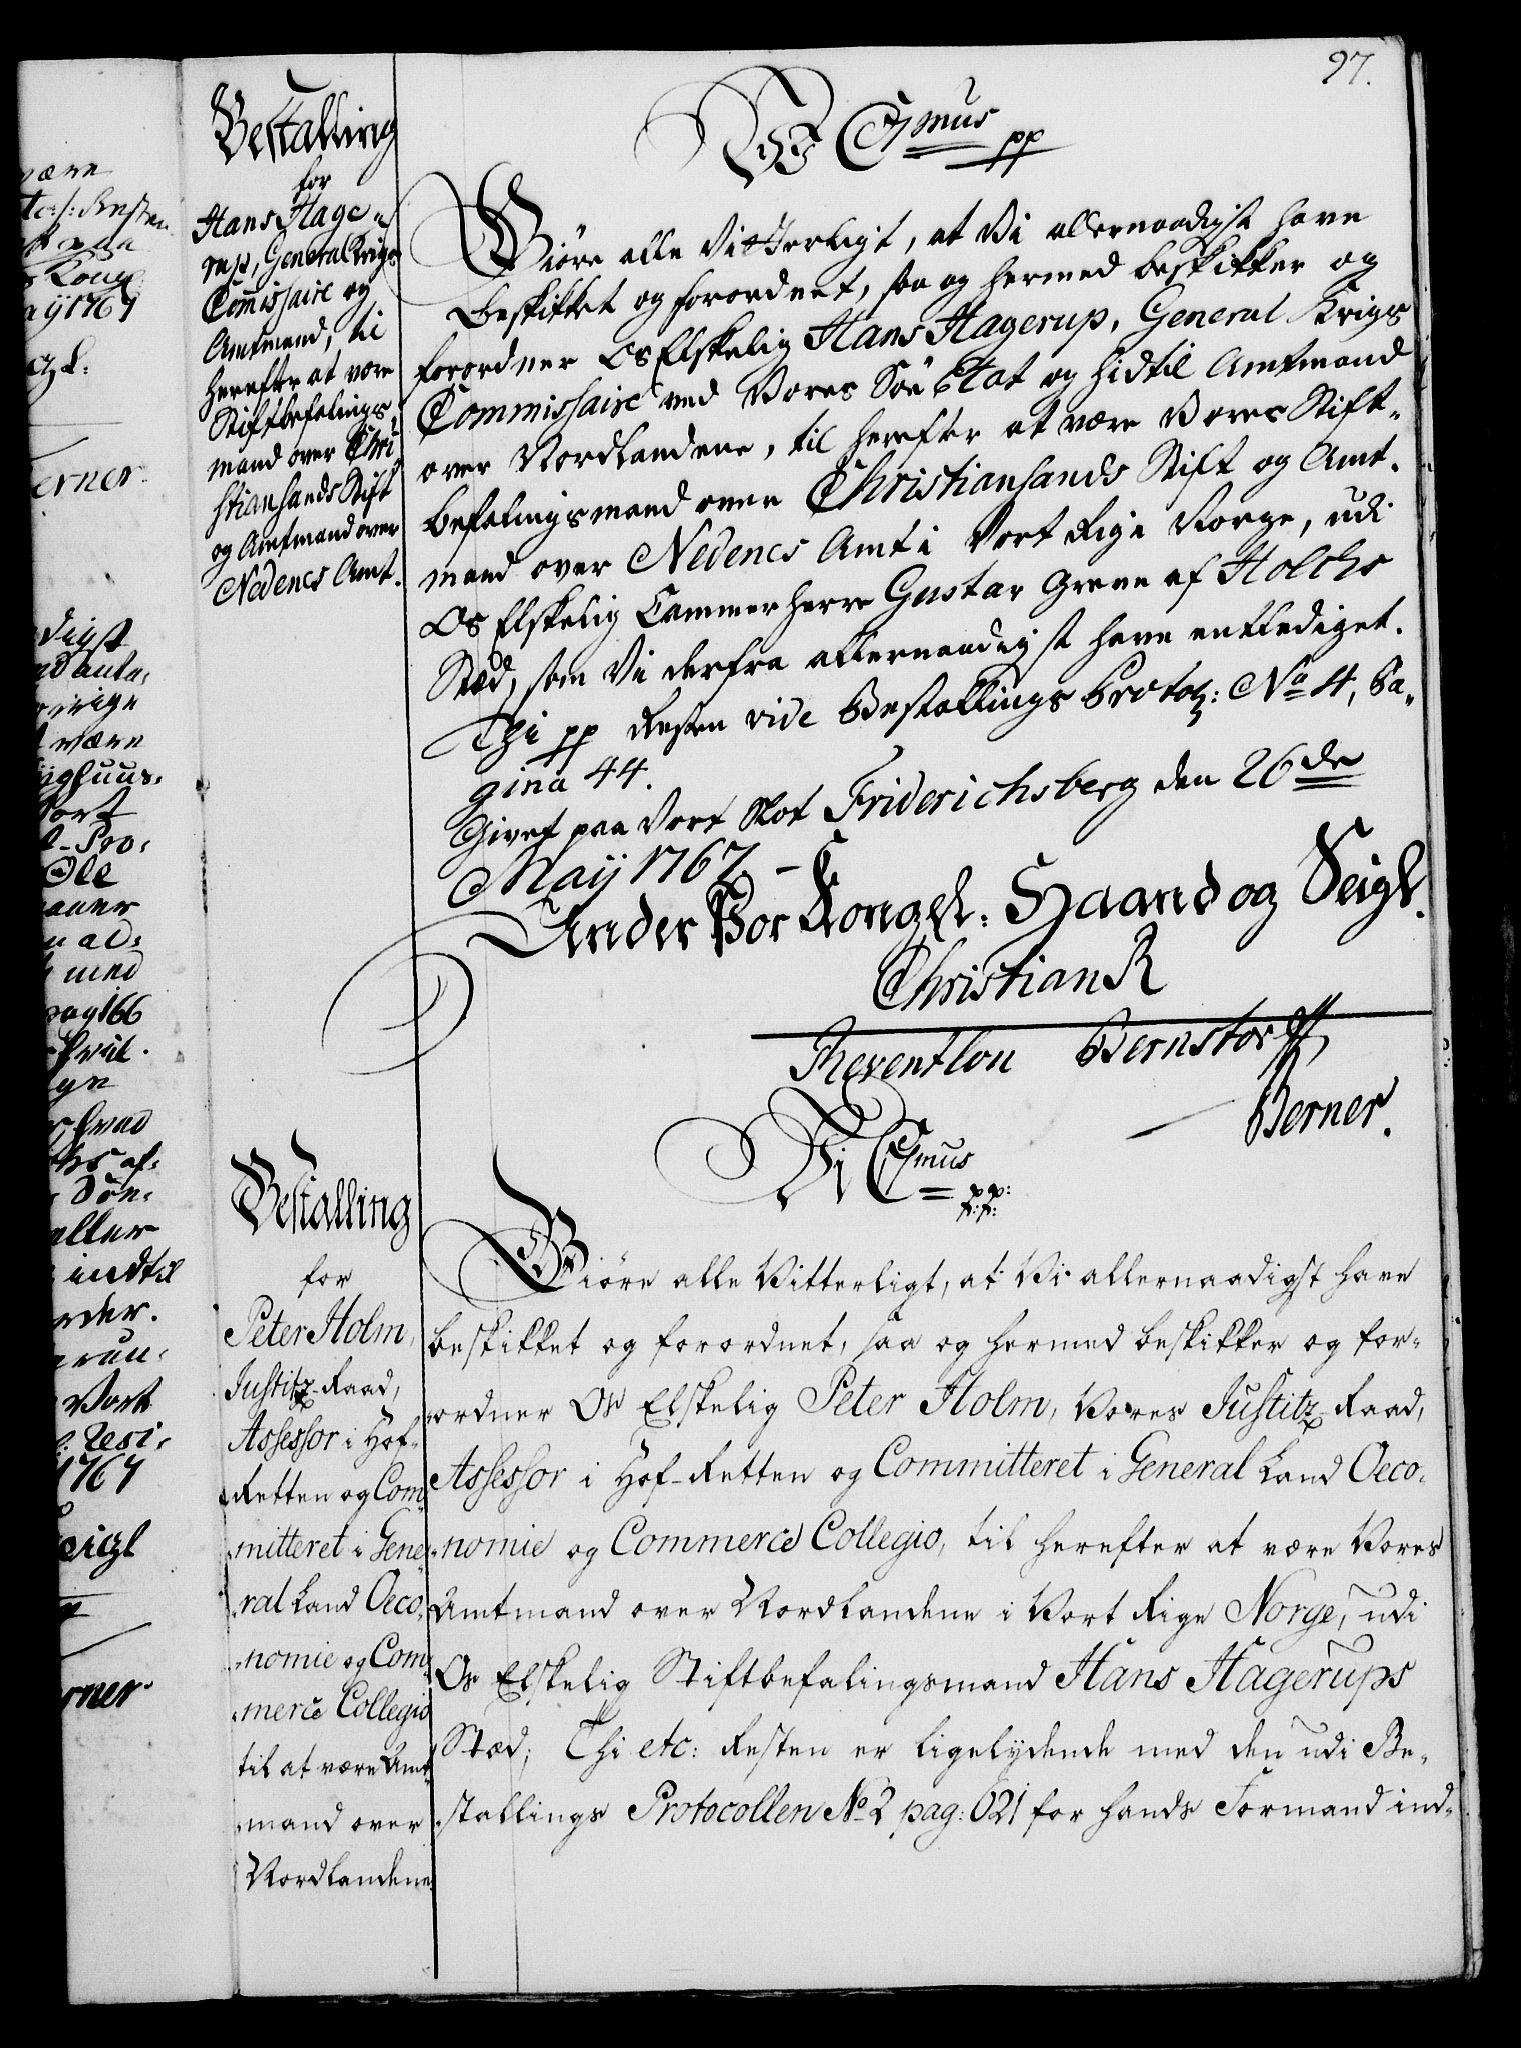 97.
Bestalling
for
Hans Hage-
rup, General Krigs
Commissaire og
Amtmand, til
herefter at være
Stiftbefalings
mand over Chri
stiansands Stift
og Amtmand over
Nedenes Amt.
Vi C 7mus pp
Giöre alle Vitterligt, at Vi allernaadigst have
beskikket og forordnet, saa og hermed beskikker og
forordner Os Elskelig Hans Hagerup, General Krigs
Commissaire ved Vores Söe Etat og hidtil Amtmand
over Nordlandene, til herefter at være Vores Stift-
befalingsmand over Christiansands Stift og Amt-
mand over Nedenes Amt i Vort Rige Norge, udi
Os Elskelig Cammerherre Gustav Greve af Holchs
Stæd, som Vi derfra allernaadigst have entlediget.
Thi pp Resten vide Bestallings Protoc: No 4, Pa-
gina 44.
Givet paa Vort Slot Friderichsberg den 26de
Maij 1767. –
Under Vor Kongel: Haand og Seigl.
Christian R
Reventlou Bernstorff,
Berner.
Bestalling
for
Peter Holm,
Justitz-Raad,
Assessor i Hof-
Retten og Com-
mitteret i Gene-
ral Land Oeco-
nomie og Com-
merce Collegio
til at være Amt-
mand over
Nordlandene.
Vi C 7mus pp:
Giöre alle Vitterligt, at Vi allernaadigst have
beskikket og forordnet, saa og hermed beskikker og for-
ordner Os Elskelig Peter Holm, Vores Justitz-Raad,
Assessor i Hof-Retten og Committeret i General Land Oeco-
nomie og Commerce Collegio, til herefter at være Vores
Amtmand over Nordlandene i Vort Rige Norge, udi
Os Elskelig Stiftbefalingsmand Hans Hagerups
Stæd; Thi etc: Resten er ligelydende med den udi Be-
stallings Protocollen No 2 pag: 621 for hands Formand ind-